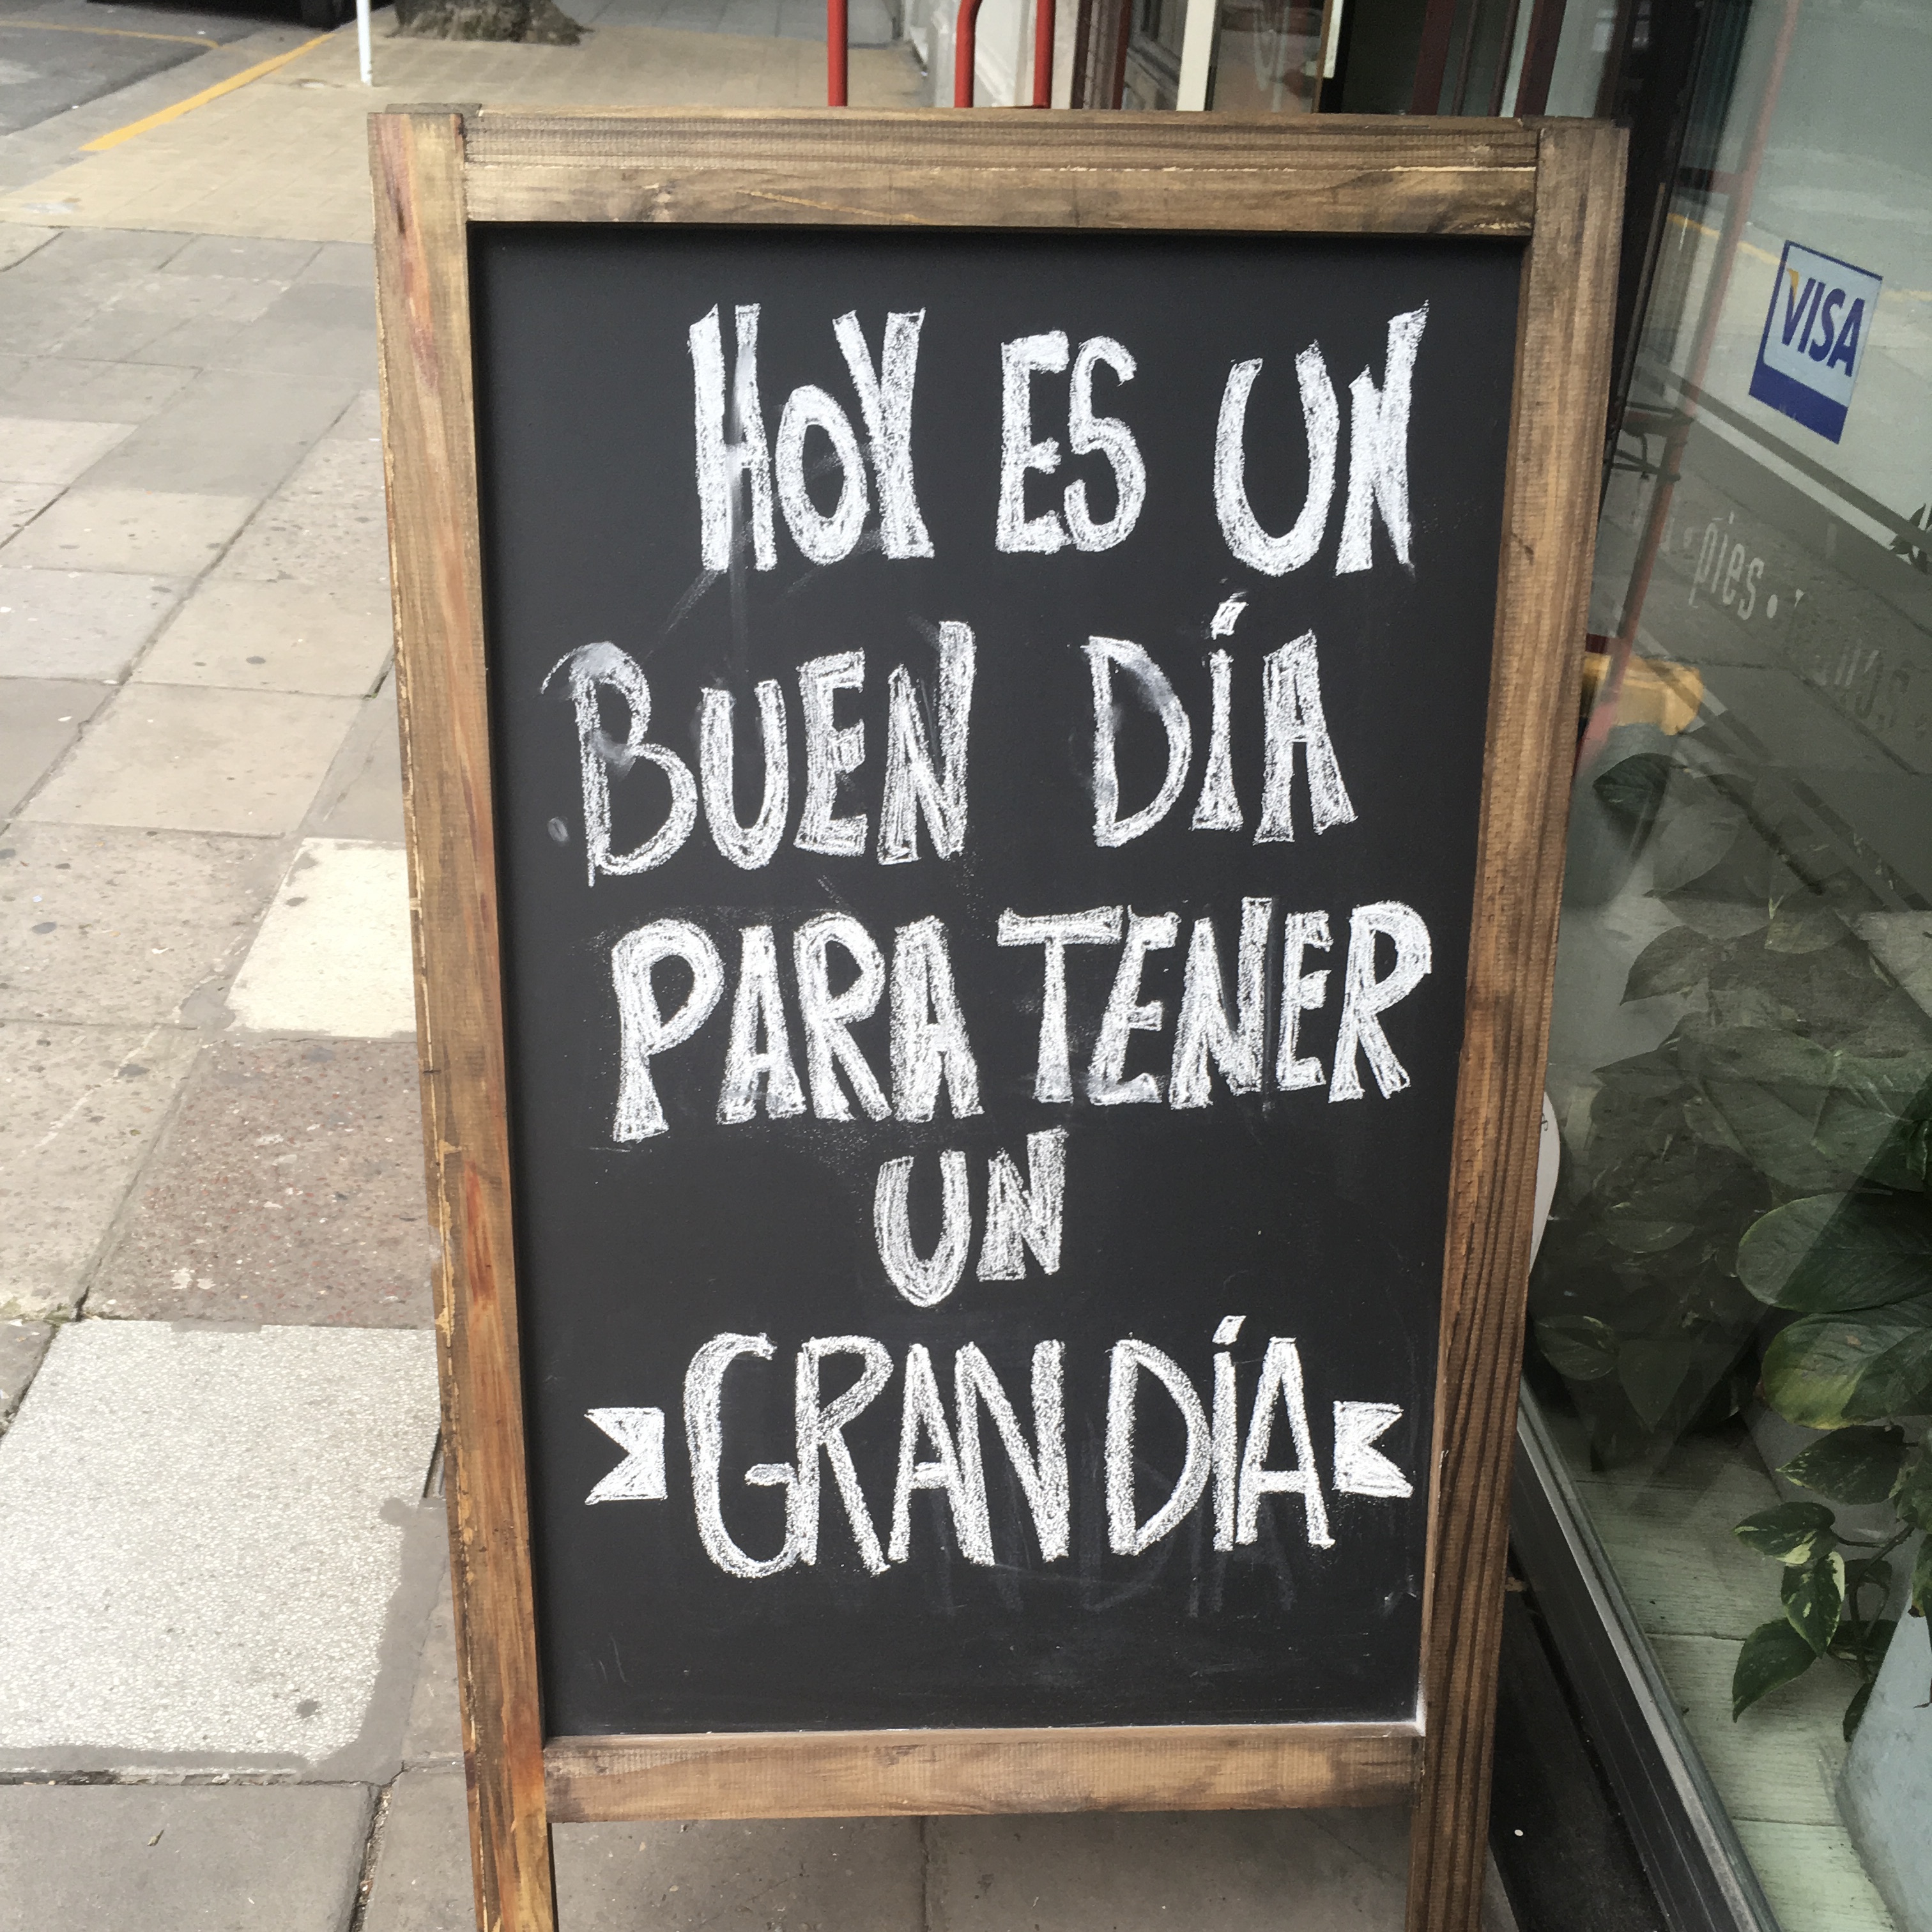 HOY ES UN
BUEN DÍA
PARA TENER
UN
GRAN DÍA
VISA
pies